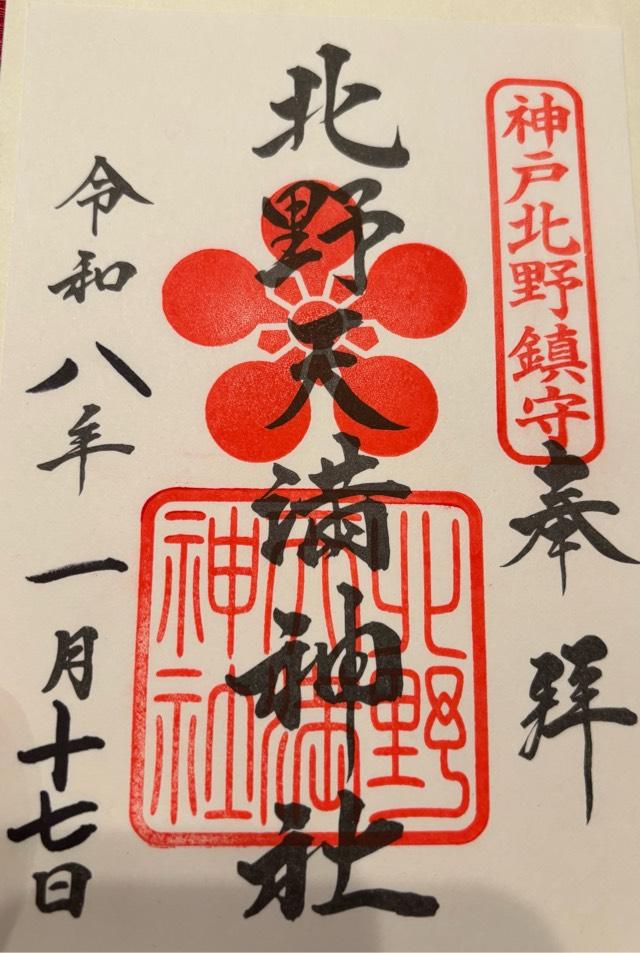 神戸北野鎮守
奉拝
北野天満神社
北野
天満
神社
令和八年一月十七日